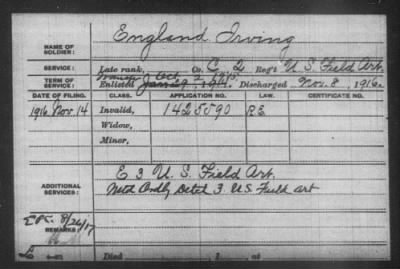 England Irving
NAME OF SOLDIER:
SERVICE: Late rank, Co. C 2 Reg't U.S. Field Art.
TERM OF SERVICE: Enlisted Discharged Nov. 8, 1916.
DATE OF FILING. CLASS. APPLICATION NO. LAW. CERTIFICATE NO.
1916 Nov 14 Invalid, 1425590 R.E.
Widow,
Minor,
ADDITIONAL SERVICES: E 3 U.S. Field Art.
Detch 3 U.S. Field art
REMARKS: 9/26/17
Died , at